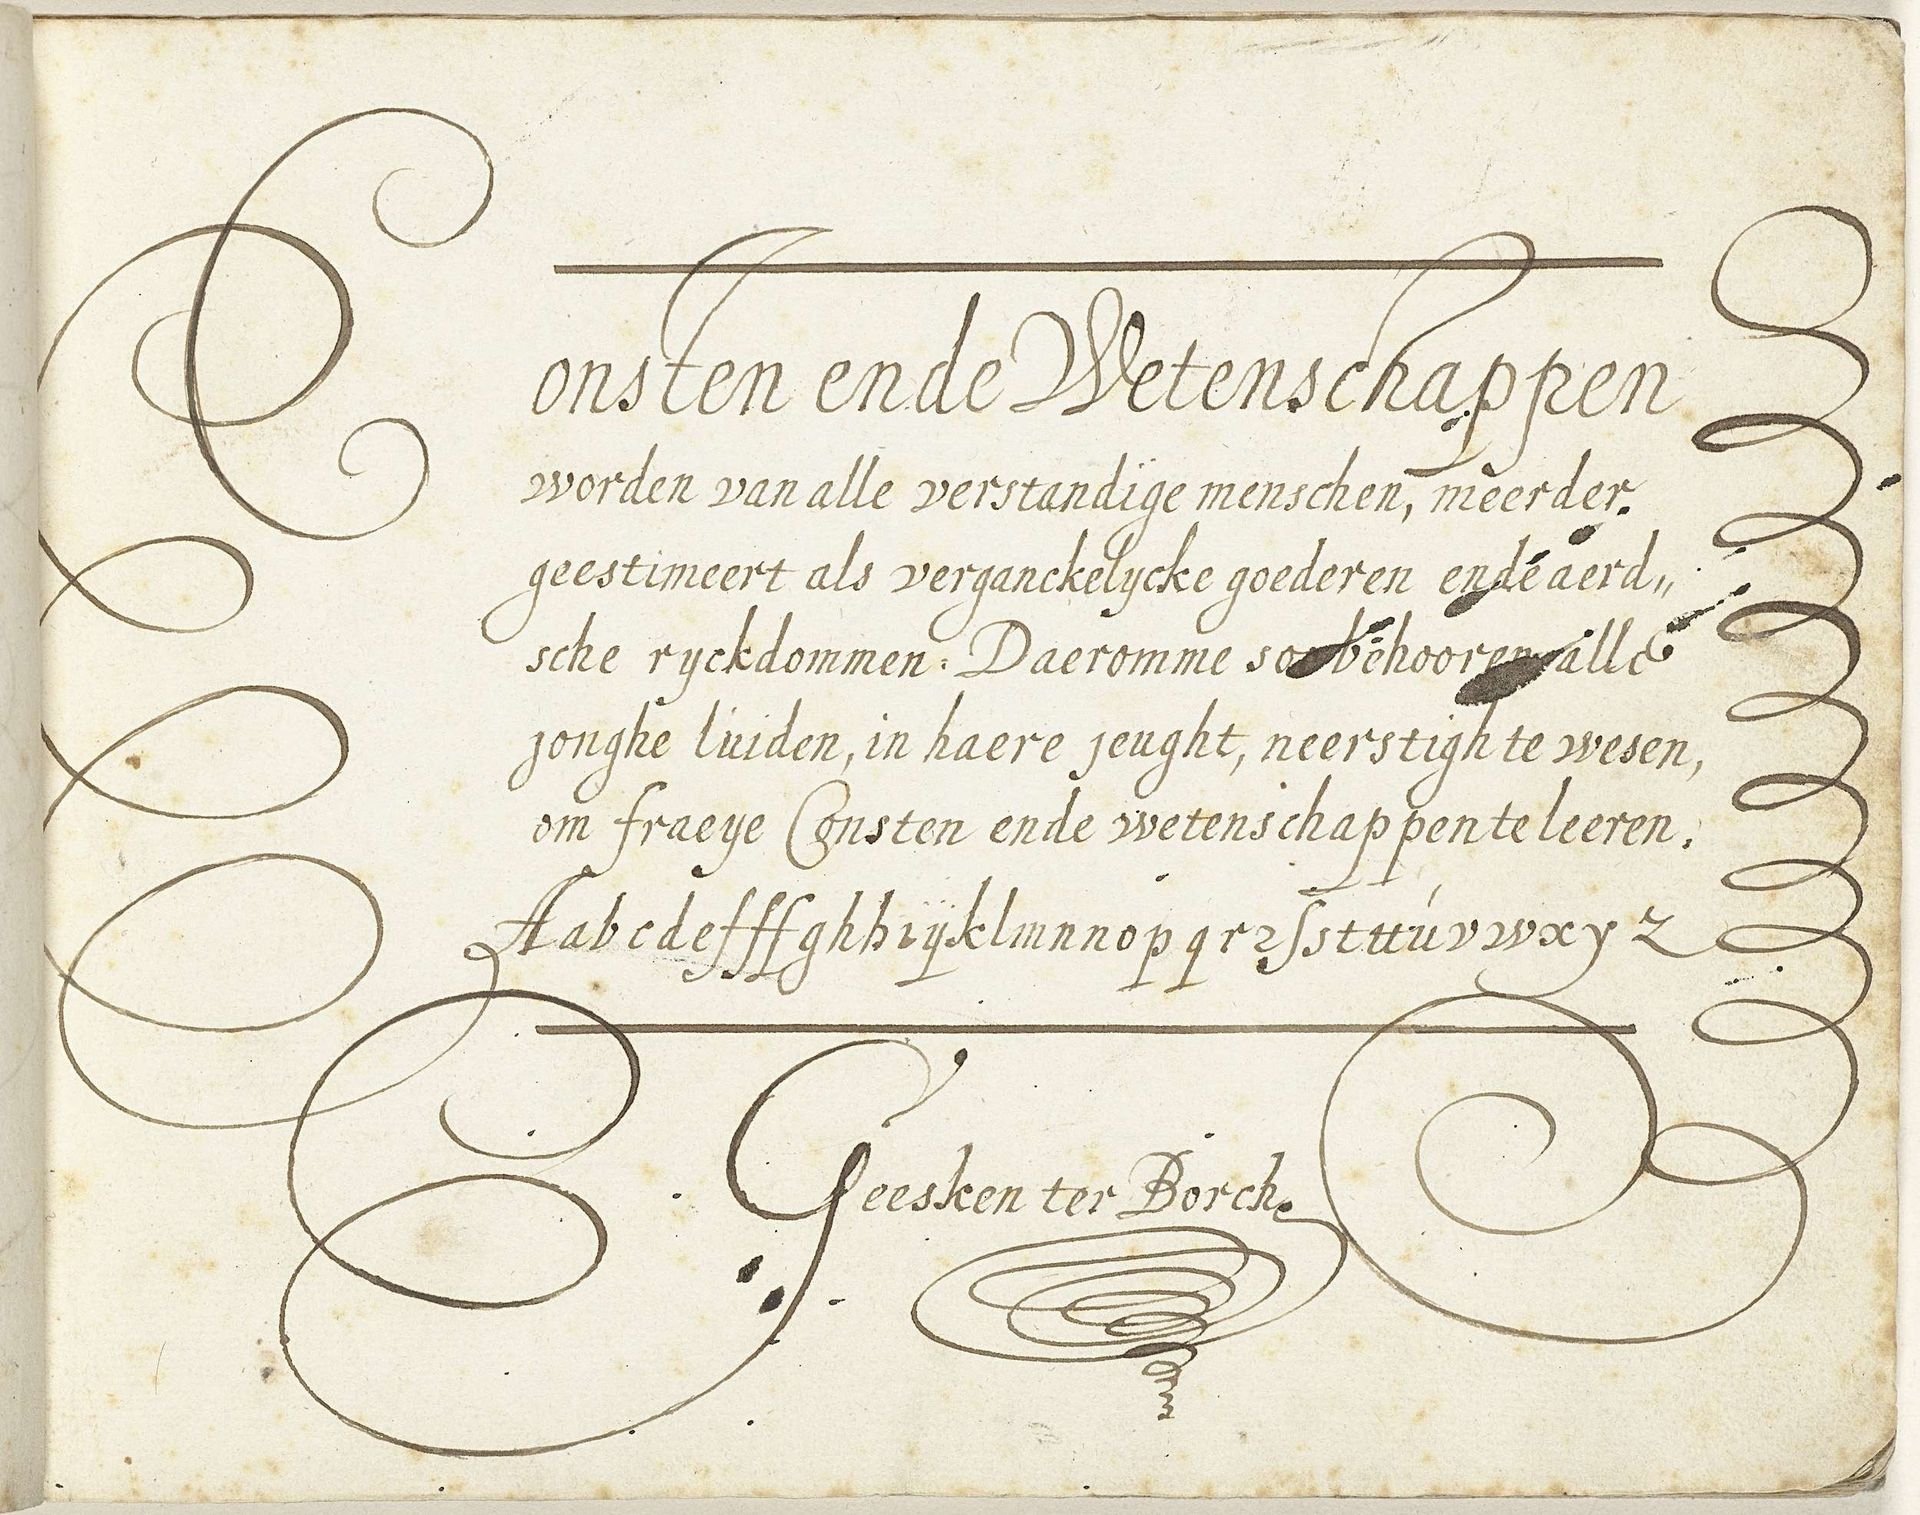 Consten ende Wetenschappen
worden van alle verstandïge menschen, meerder.
geestimeert als verganckelycke goederen ende aerd„
sche ryckdommen: Daeromme soo behooren alle
jonghe luiden, in haere jeught, neerstigh te wesen,
om fraeye Consten ende wetenschappen te leeren.
A a b c d e f ff f g h h i ÿ k l m n n o p q r r ſ s t tt u v w x y z
Geesken ter Borch.